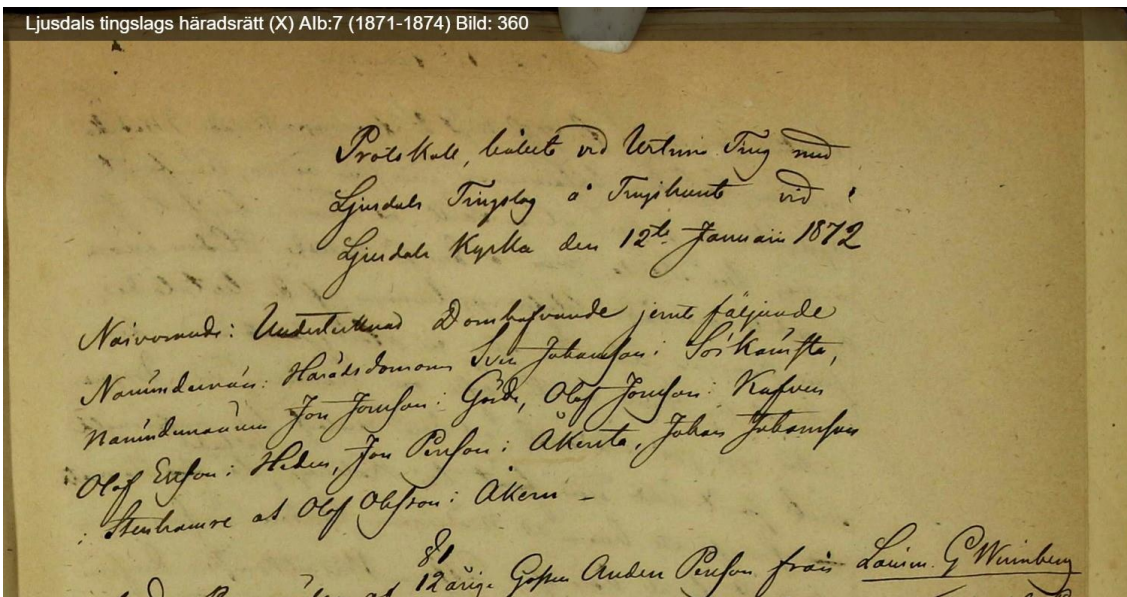 Ljusdals tingslags häradsrätt (X) Alb:7 (1871-1874) Bild: 360
Protokoll, hållet vid Urtima Ting med
Ljusdals Tingslag å Tingshuset vid
Ljusdals Kyrka den 12te Januari 1872
Närvarande: Undertecknad Domhafvande jemte följande
Nämndemän: Häradsdomaren Sven Johansson i Sörkämsta,
Nämndemännen Jon Jonsson i Gärde, Olof Jonsson i Kafven
Olof Ersson i Heden, Jon Persson i Åkersta, Johan Johansson
i Stenhamre at Olof Olsson i Åkern –
§1
12årige Gossen Anders Persson från Länsm. G Winnberg